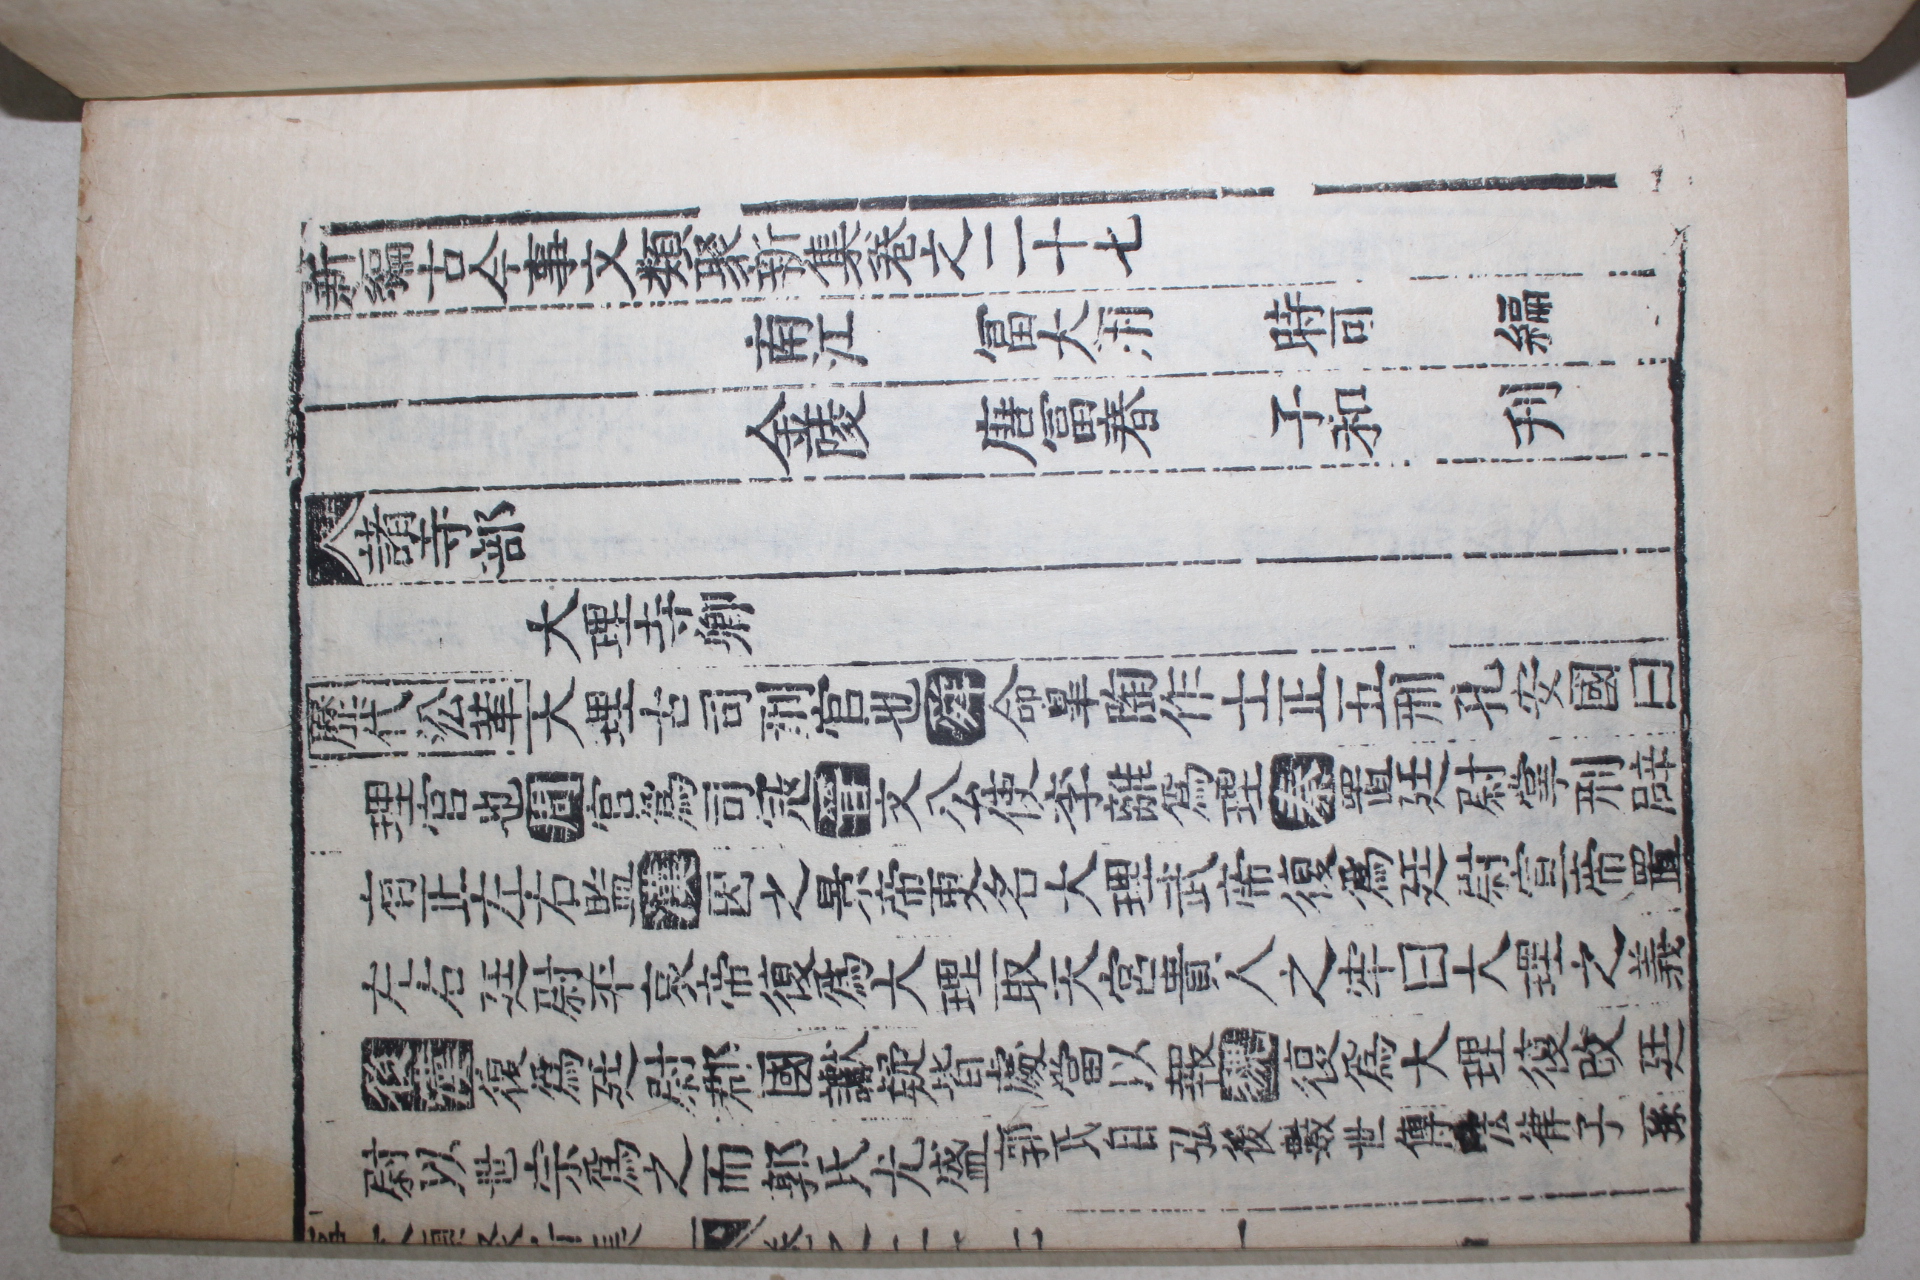 新編古今事文類聚新集卷之二十七
南江 冨大用 時可 編
金陵 唐冨春 子和 刊
諸寺部
大理寺卿
歷代沿革 大理古司刑官也舜命皐陶作士正五刑孔安國曰
理官也周官爲司冦晉文公使李離爲理秦置廷尉掌刑辟
有正左右監漢因之景帝更名大理武帝復爲廷尉宣帝置
左右廷尉平哀帝復爲大理取天官貴人之牢曰大理之義
後漢復爲廷尉郡國讞疑皆處當以報魏復爲大理復改廷
尉以世宗爲之而郭氏尤盛郭氏自弘後數世傳法律子孫